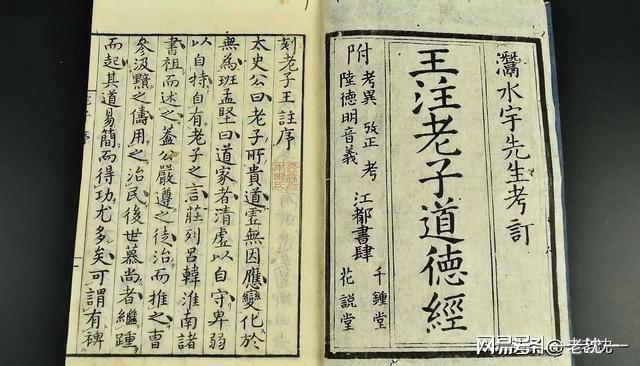 灊水宇先生考訂
王注老子道德經
附 考異 攷正 考
陸德明音義
江都書肆
千鍾堂
花説堂
刻老子王註序
太史公曰老子所貴道虛無因應變化於
無為班孟堅曰道家者清虛以自守卑弱
以自持自有老子之言莊列呂韓淮南諸
書祖而述之蓋公嚴遵之徒治而推之曹
參汲黯之儔用之治民後世慕尚者繼踵
而起其道易簡而得功尤多矣可謂有裨
网易号